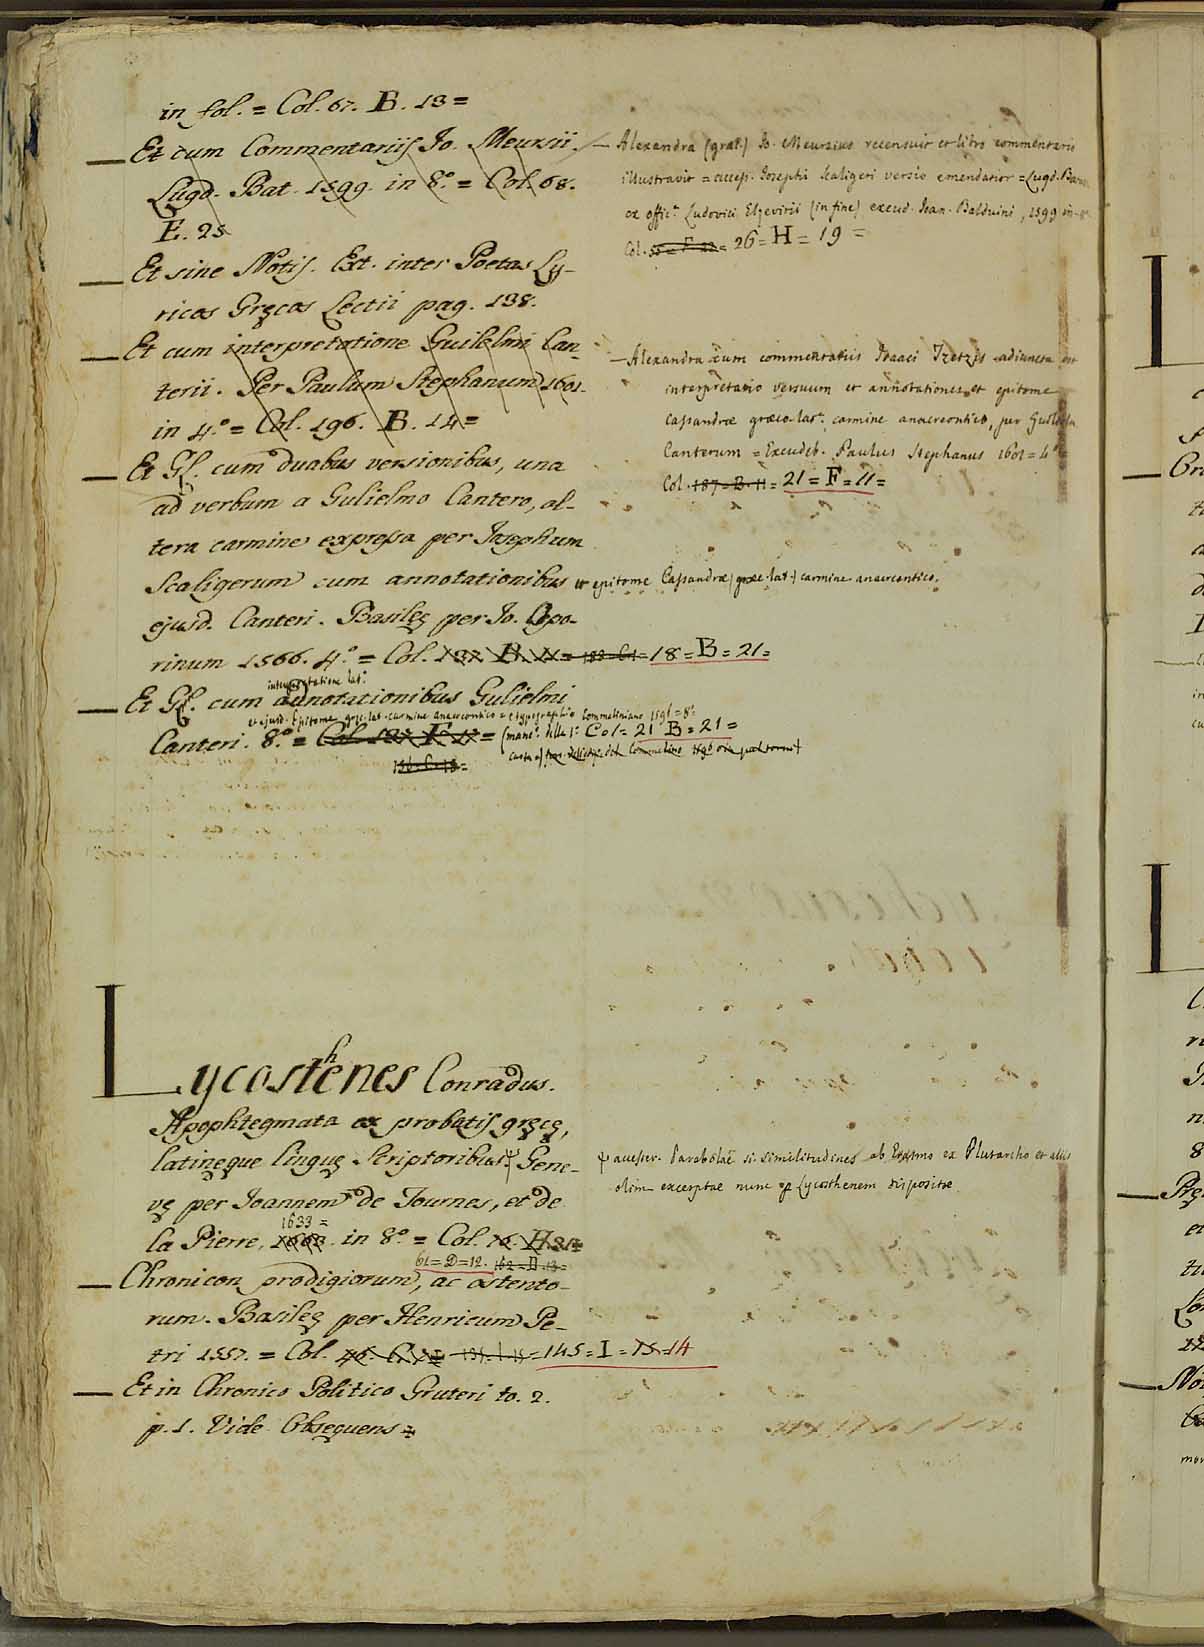 in fol. = Col. 67. B. 13 =
Et cum Commentariis Jo. Meursii.
Lugd. Bat. 1599. in 8.º = Col. 68.
E. 25
Et sine Notis. Ext. inter Poetas Ly-
ricos Gręcos Lectii pag. 138.
Et cum interpretatione Guilelmi Can-
terii. Per Paulum Stephanum 1601.
in 4.º = Col. 196. B. 14 =
Et Gl. cum duabus versionibus, una
ad verbum a Gulielmo Cantero, al-
tera carmine expressa per Josephum
Scaligerum cum annotationibus et epitome Cassandræ (græc-lat.) carmine anacreontico.
ejusd. Canteri. Basileę per Jo. Opo-
rinum 1566. 4.º = Col. = 18 = B = 21 =
interpretatione lat.
Et Gl. cum annotationibus Gulielmi
et ejusd. Epitome græc-lat. carmine anacreontico = e typographio Commeliniano 1596 = 8º
Canteri. 8.º = = (manc. della 1ª Col = 21 B = 21 =
carta)
— Alexandra (græc.) Jo. Meursius recensuit et libro commentario
illustravit = access. Josephi Scaligeri versio emendatior = Lugd. Batav
ex offic. Ludovici Elzevirii (in fine) excud. Joan. Balduini, 1599 in-8º
Col. = 26 = H = 19 =
— Alexandra cum commentariis Isaaci Tzetzis adiuncta est
interpretatio versuum et annotationes et epitome
Cassandræ græco-latª. carmine anacreontico, per Gulielm
Canterum = Excudeb. Paulus Stephanus 1601 = 4º =
Col. 187 = B. 11 = 21 = F = 11 =
Lycosthenes Conradus.
Apophtegmata ex probatis gręcę,
latinęque linguę Scriptoribus ψ Gene-
vę per Joannem de Tournes, et de
1633 =
la Pierre, in 8.º = Col.
61 = D = 12.
Chronicon prodigiorum, ac ostento-
rum. Basileę per Henricum Pe-
tri 1557. = Col. = 145 = I = 15 14
Et in Chronico Politico Gruteri to. 2.
p. 1. Vide Obsequens =
ψ accesser. Parabolae si. similitudines ab Erasmo ex Plutarcho et aliis
olim excerptae nunc p Lycosthenem dispositæ